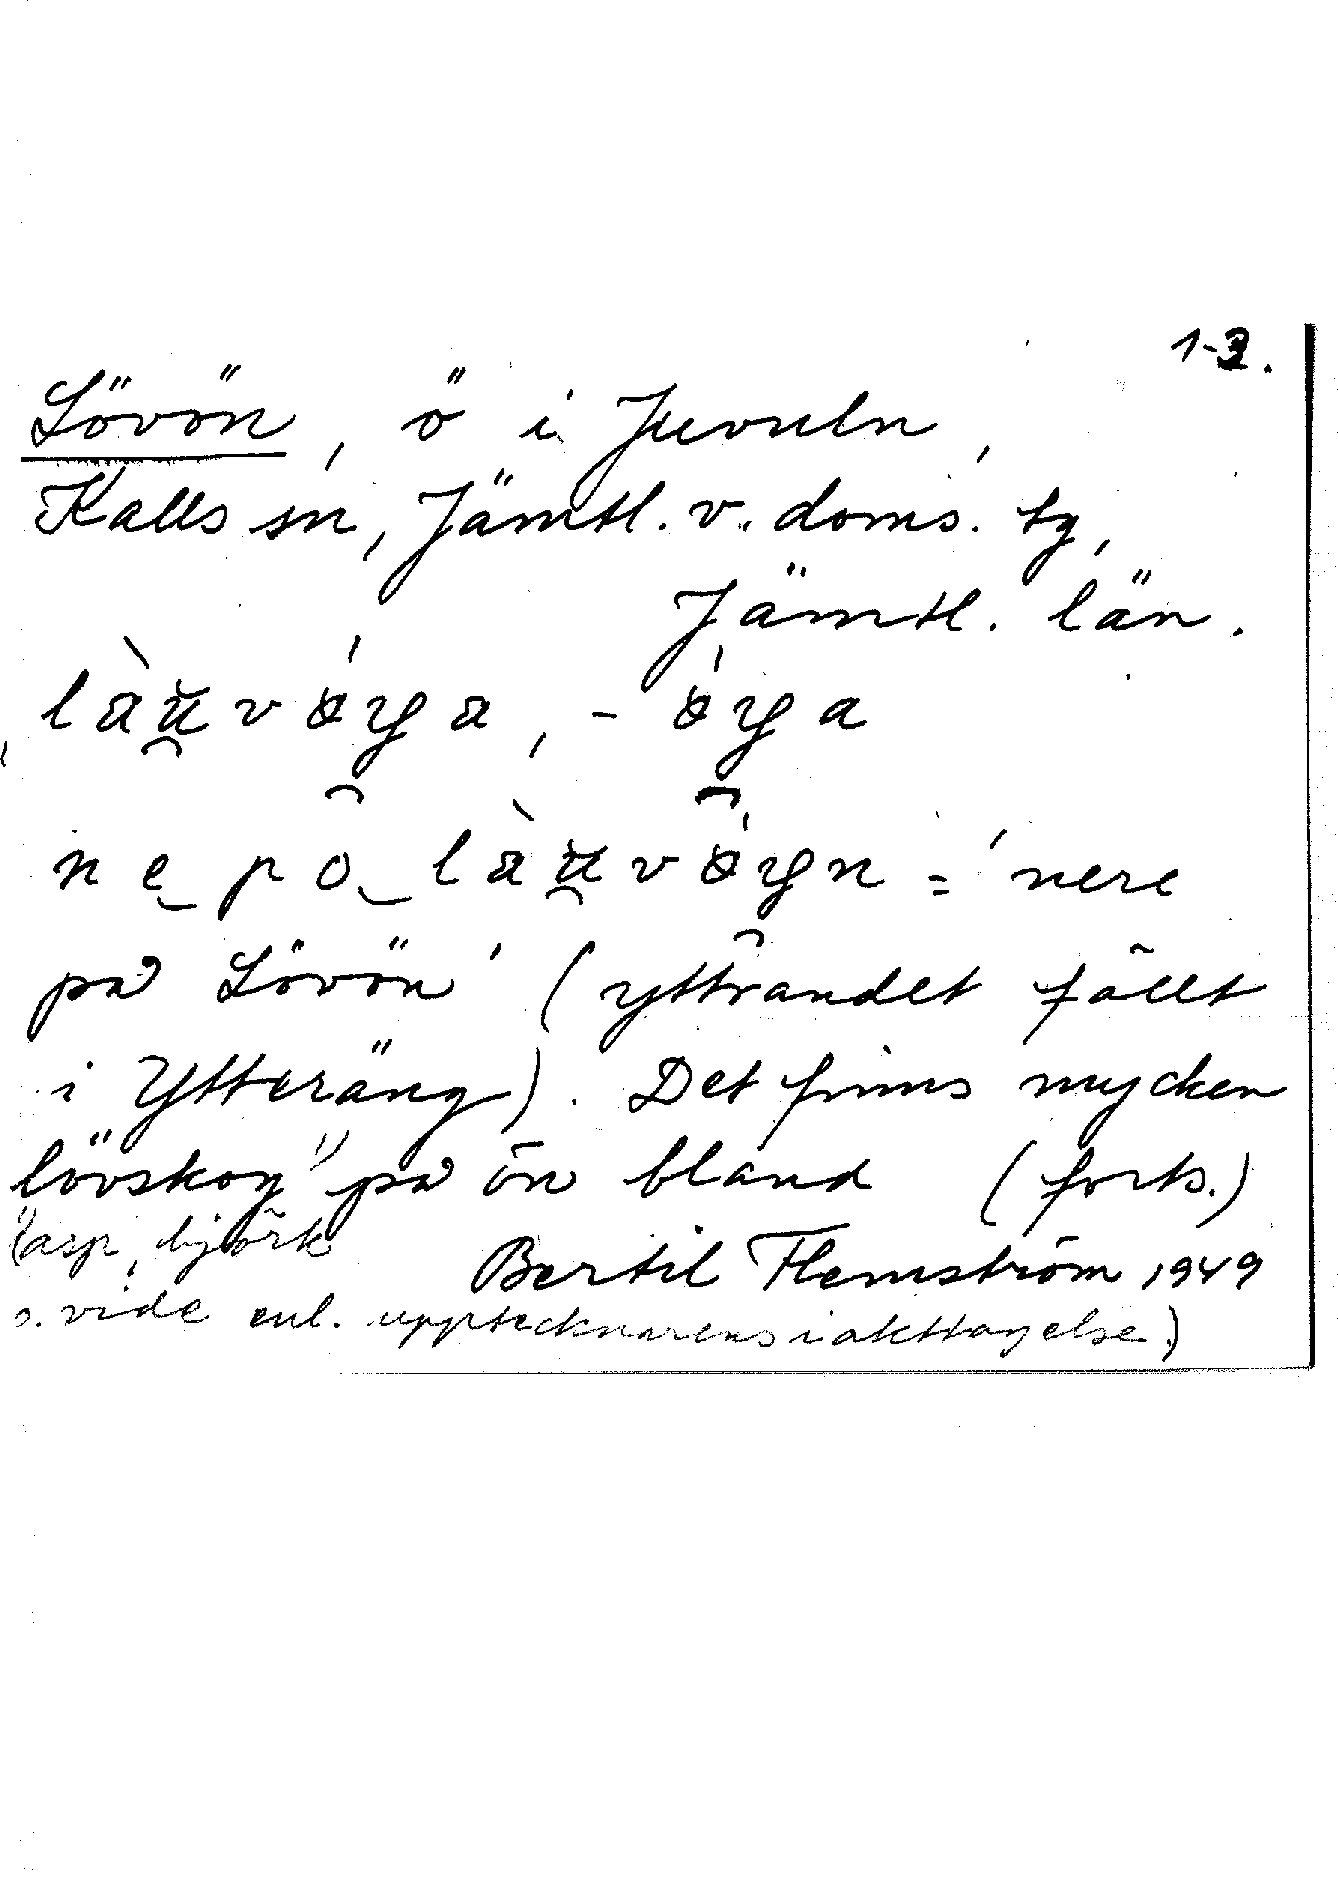 1-3.
Lövön, ö i Juvuln,
Kalls sn, Jämtl. v. doms. tg,
Jämtl. län.
= 'nere
på Lövön' (yttrandet fällt
i Ytteräng). Det finns mycken
lövskog" på ön bland (forts.)
"(asp, björk
Bertil Flemström 1949
o. vide enl. upptecknarens iakttagelse.)